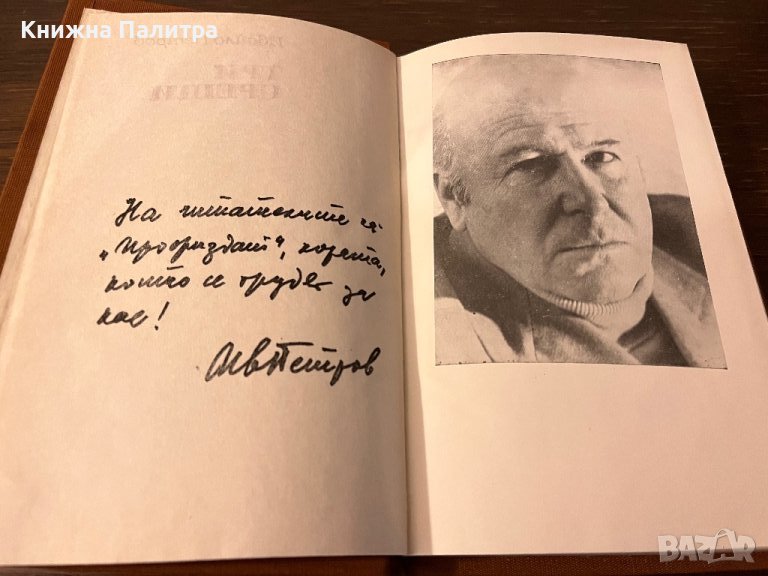 Книжна Палитра
На читателите на
"Профиздат", хората,
които се трудят за
нас!
Ив Петров
BAZAR